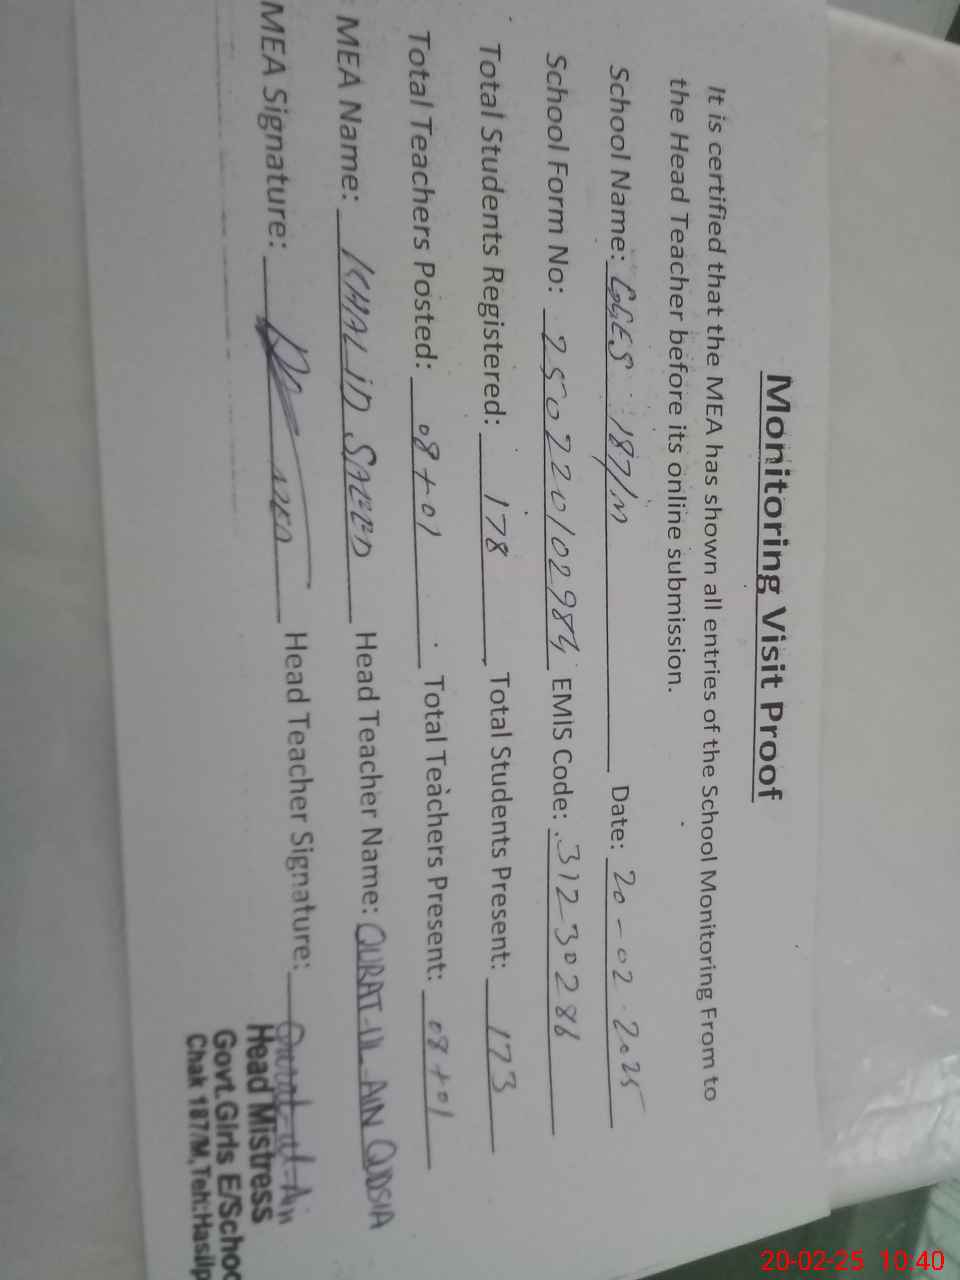 Monitoring Visit Proof
It is certified that the MEA has shown all entries of the School Monitoring From to
the Head Teacher before its online submission.
School Name: GGES 187/M Date: 20-02-2025
School Form No: 250220102984 EMIS Code: 31230286
Total Students Registered: 178 Total Students Present: 173
Total Teachers Posted: 08+01 Total Teachers Present: 08+01
MEA Name: KHALID SAEED Head Teacher Name: QURAT-UL-AIN QUDSIA
MEA Signature: MEA Head Teacher Signature: Qurat-ul-Ain
Head Mistress
Govt.Girls E/Schoo
Chak 187/M,Teh:Hasilp
20-02-25 10:40